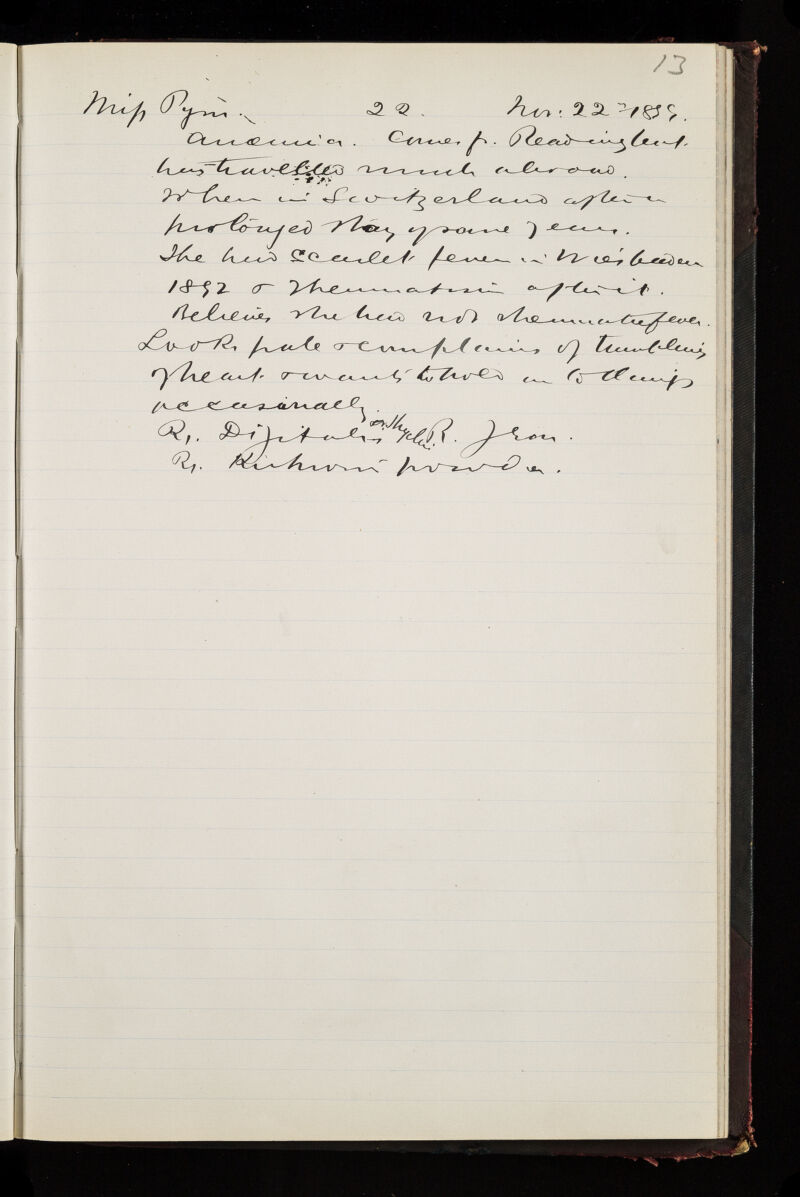 13
Miss Pym. 22. Nov: 22nd 1899.
Anæmia. Comes fr. Reading but
has travelled much abroad.
When in Switzerland after a
prolonged stay of some years.
She had scarlet fever in Wiesbaden
1892 & rheumatism after it.
Believes she had not rheumatic fever.
Looks pale & complains of trembling
of heart & wants to hold on to things
occasionally.
Rx. Digitalis & Strych: R. Iron.
Rx. powder.